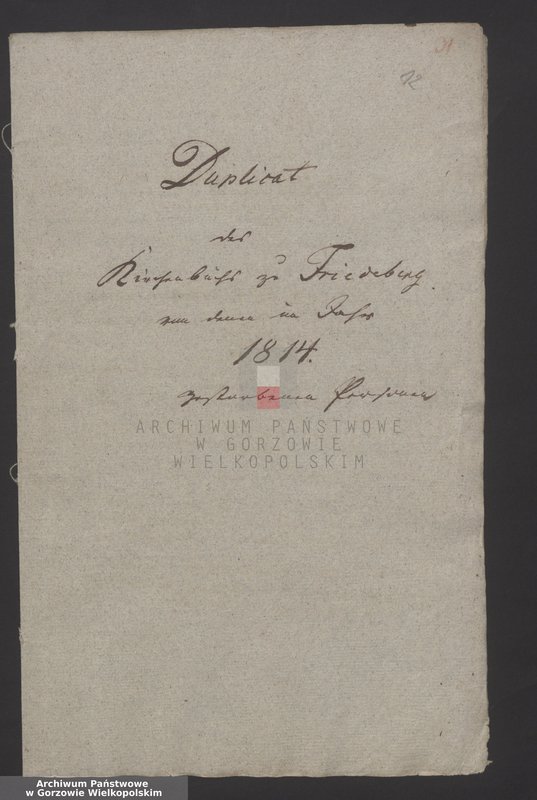 31
12
Duplicat
des
Kirchenbuchs zu Friedeberg
von denen im Jahr
1814.
gestorbenen Personen
ARCHIWUM PAŃSTWOWE
W GORZOWIE
WIELKOPOLSKIM
Archiwum Państwowe
w Gorzowie Wielkopolskim